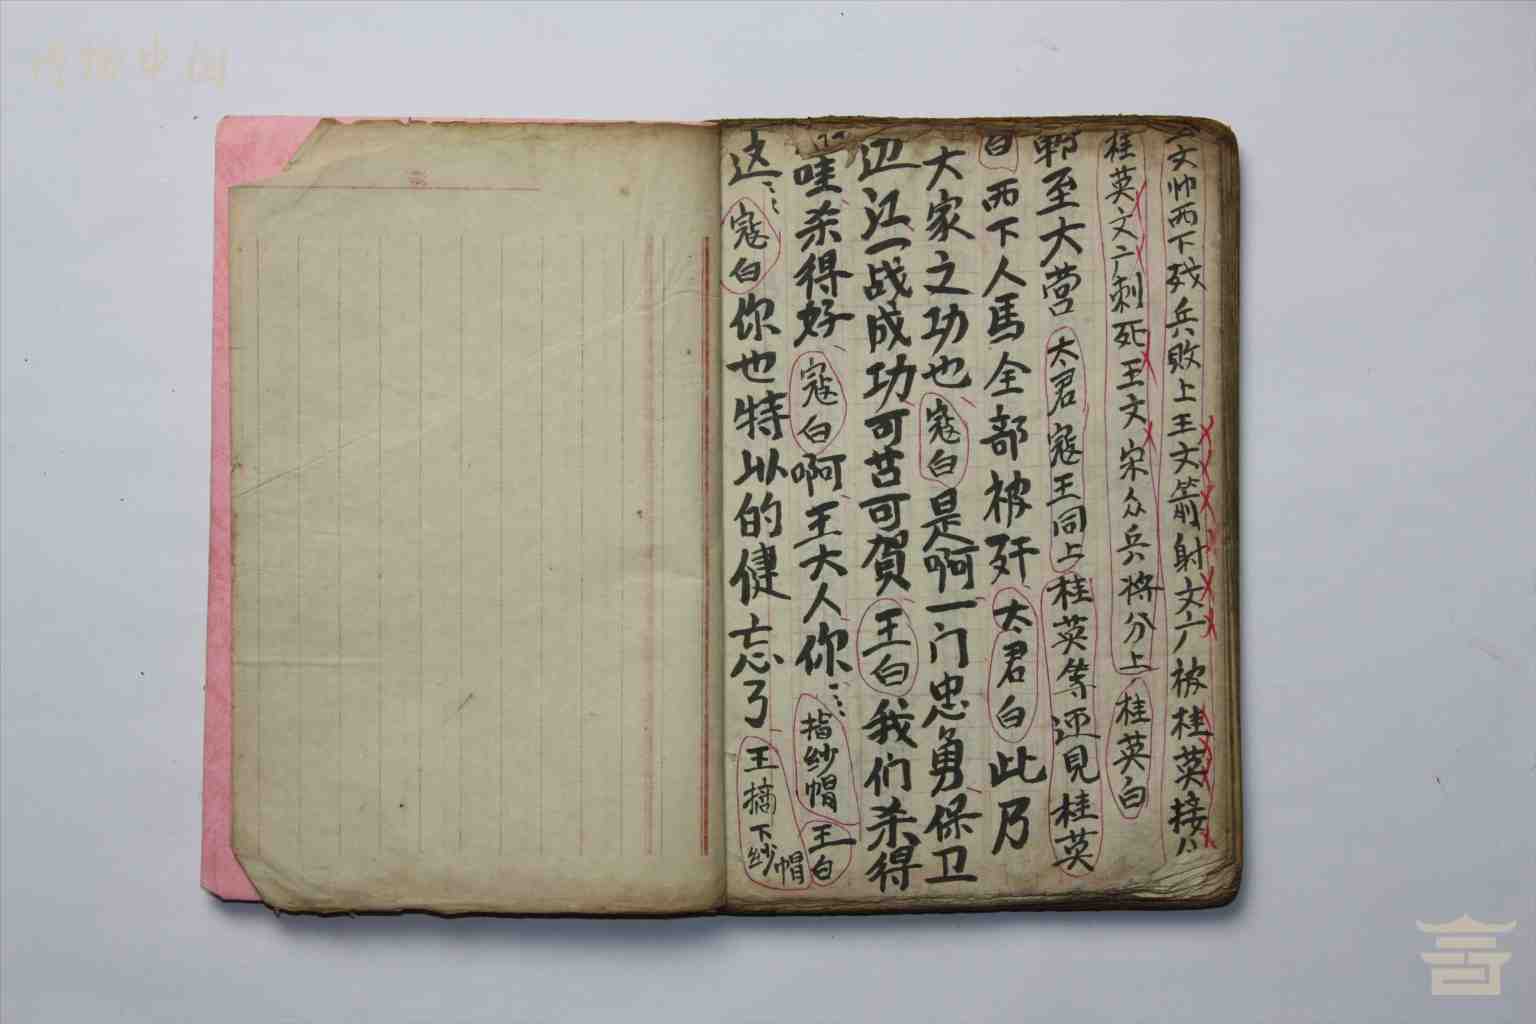 文帅西下残兵败上王文箭射文广被桂英接
桂英文广刺死王文宋众兵将分上桂英白
郭至大营太君寇王同上桂英等迎見桂英
白西下人馬全部被歼太君白此乃
大家之功也寇白是啊一门忠勇保卫
边江一战成功可苦可賀王白我们杀得
哇杀得好寇白啊王大人你……指纱帽王白
这……寇白你也特以的健忘了王摘下纱帽